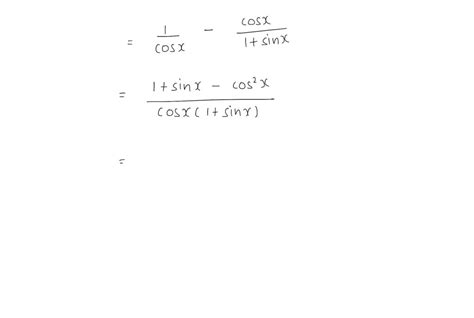 = 1/cosx - cosx/1+sinx
= 1+sinx - cos²x/cosx(1+sinx)
=